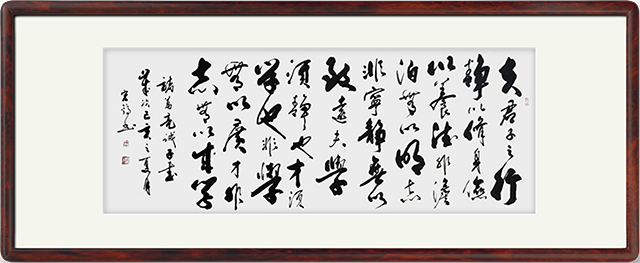 夫君子之行
靜以修身儉
以養德非澹
泊無以明志
非寧靜無以
致遠夫學
須靜也才須
學也非學
無以廣才非
志無以成學
諸葛亮誡子書
歲次己亥之夏月